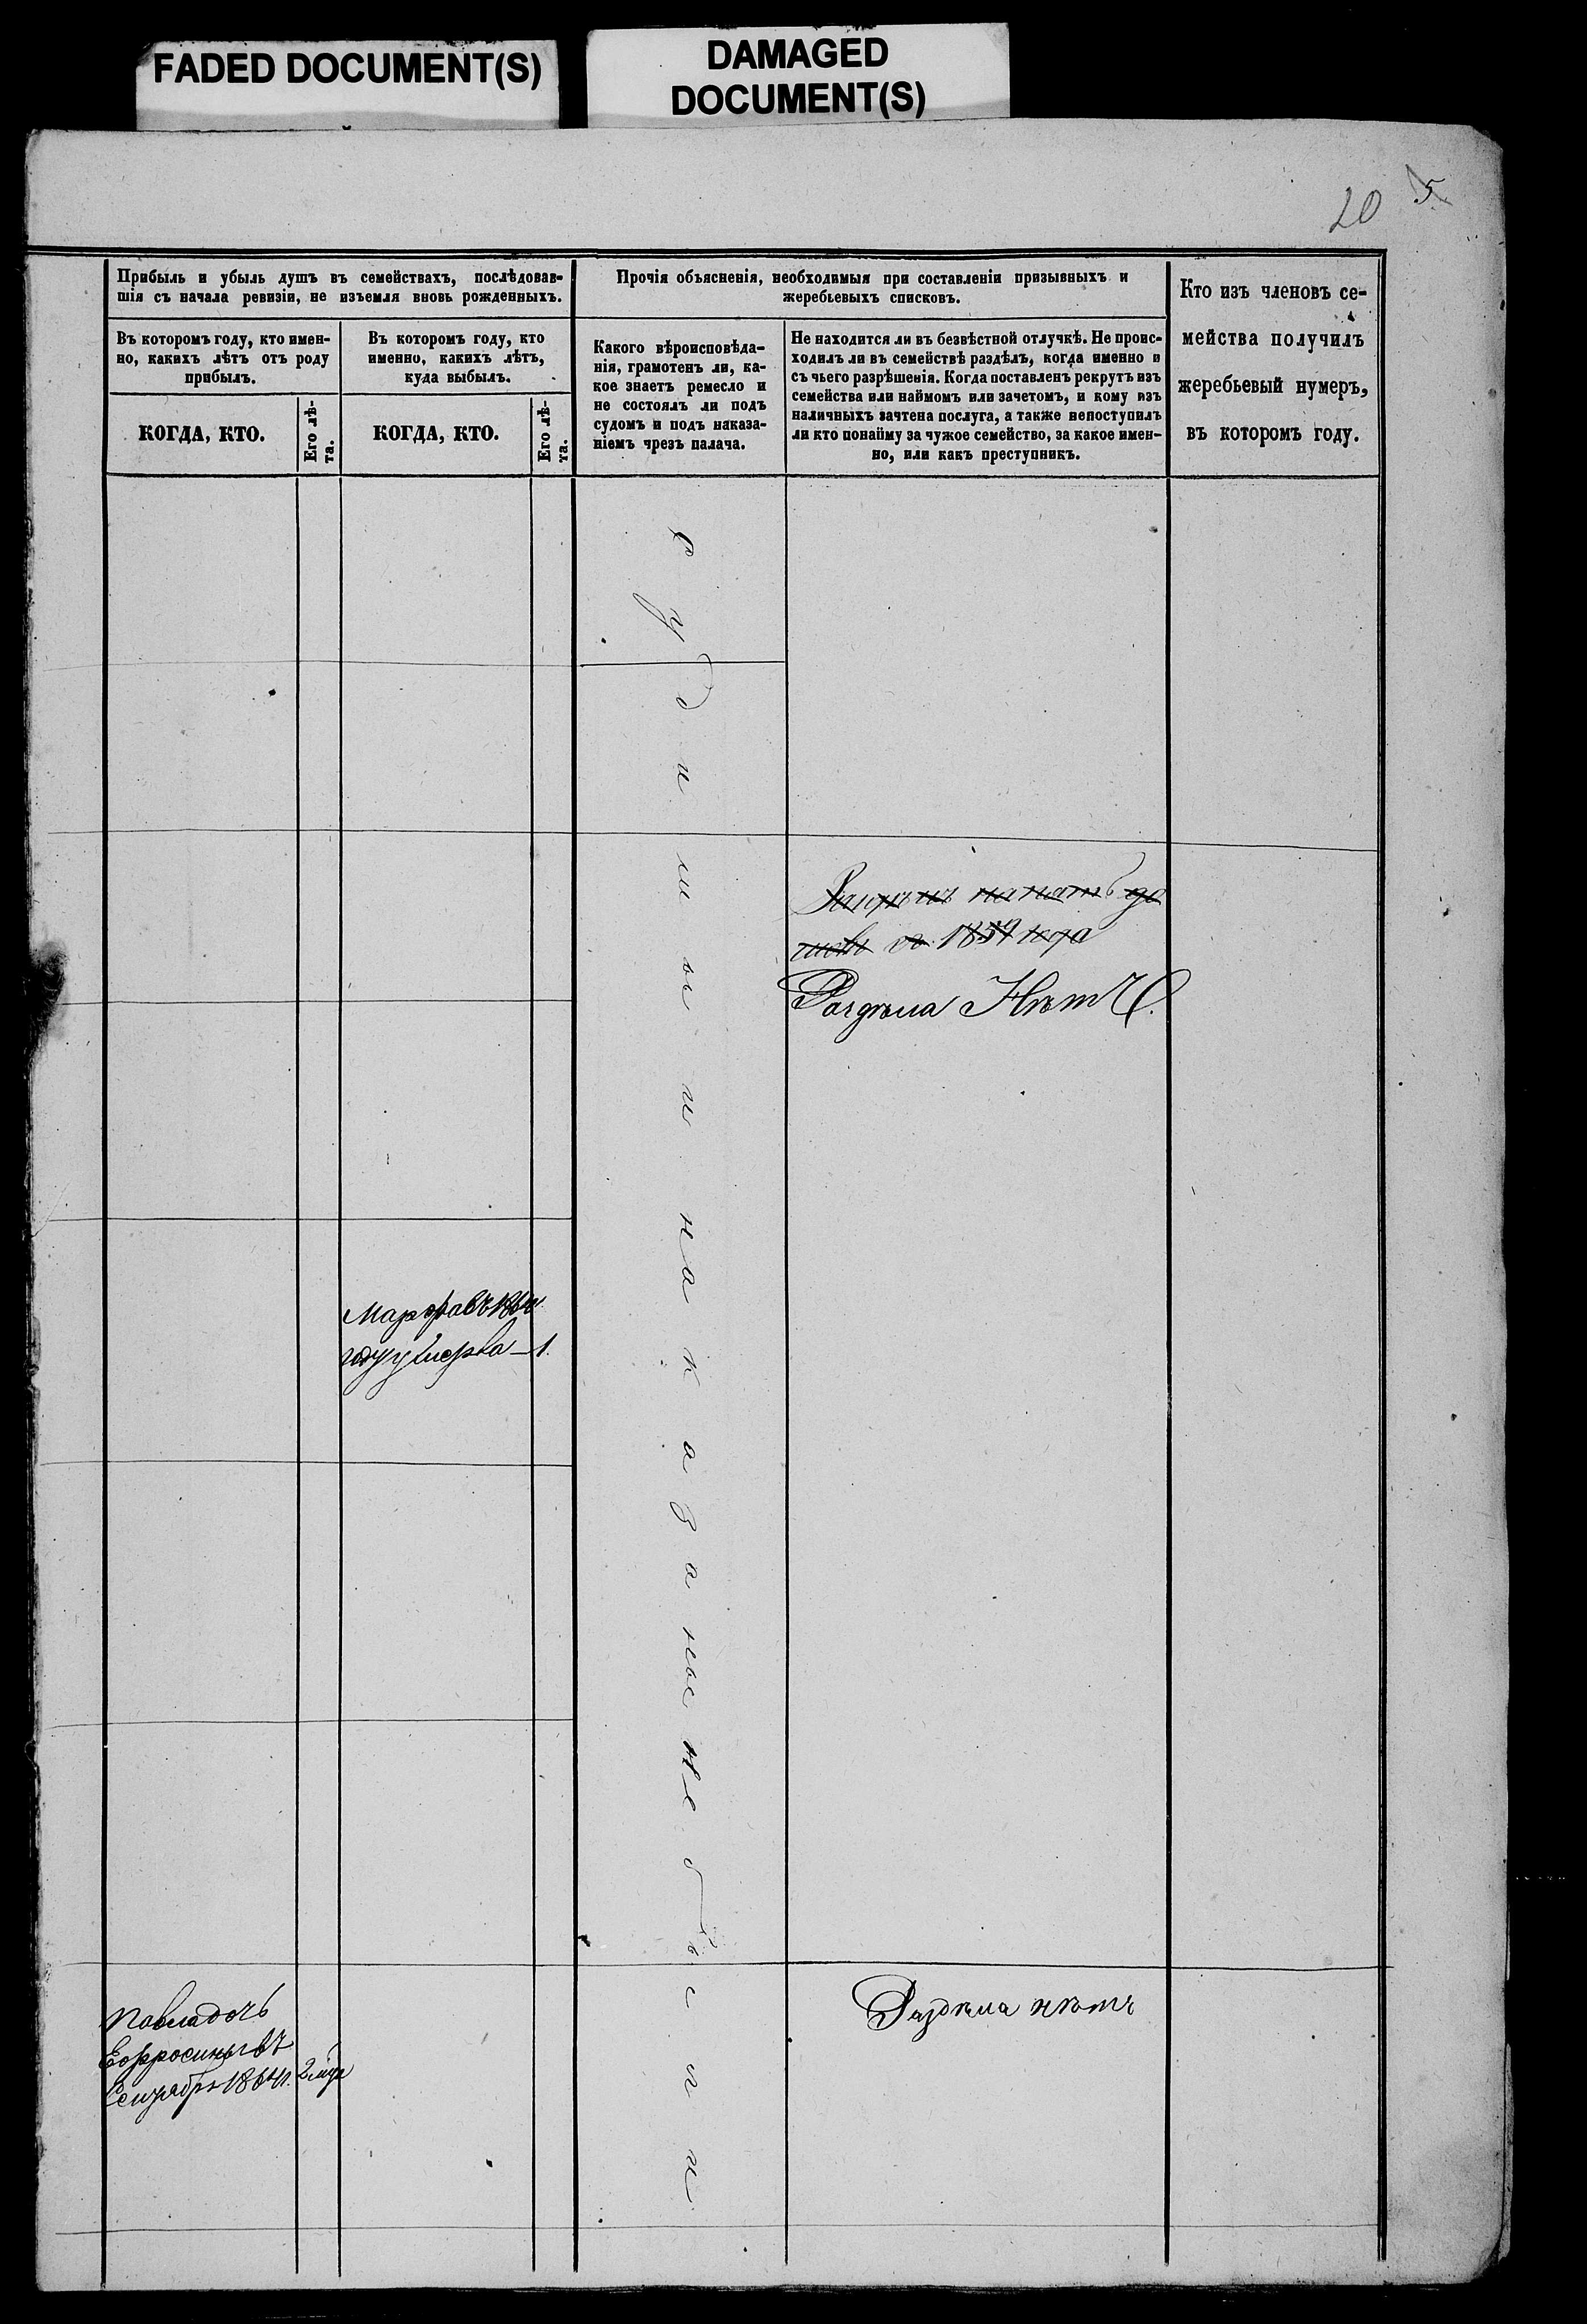 FADED DOCUMENT(S)
DAMAGED
DOCUMENT(S)
20 5
Прибыль и убыль душъ въ семействахъ, послѣдовав-
шія съ начала ревизіи, не изъемля вновь рожденныхъ.
Въ которомъ году, кто имен-
но, какихъ лѣтъ отъ роду
прибылъ.
КОГДА, КТО.
Его лѣ-
та.
Въ которомъ году, кто
именно, какихъ лѣтъ,
куда выбылъ.
КОГДА, КТО.
Его лѣ-
та.
Прочія объясненія, необходимыя при составленіи призывныхъ и
жеребьевыхъ списковъ.
Какого вѣроисповѣда-
нія, грамотенъ ли, ка-
кое знаетъ ремесло и
не состоялъ ли подъ
судомъ и подъ наказа-
ніемъ чрезъ палача.
Не находится ли въ безвѣстной отлучкѣ. Не проис-
ходилъ ли въ семействѣ раздѣлъ, когда именно и
съ чьего разрѣшенія. Когда поставленъ рекрутъ изъ
семейства или наймомъ или зачетомъ, и кому изъ
наличныхъ зачтена послуга, а также непоступилъ
ли кто понайму за чужое семейство, за какое имен-
но, или какъ преступникъ.
Кто изъ членовъ се-
мейства получилъ
жеребьевый нумеръ,
въ которомъ году.
1859 года
Раздѣла Нѣтъ.
Марфа въ 1864
году умерла — 1.
дочь
Ефросинья въ
Сентябрѣ 1864 2 года
Раздѣла нѣтъ